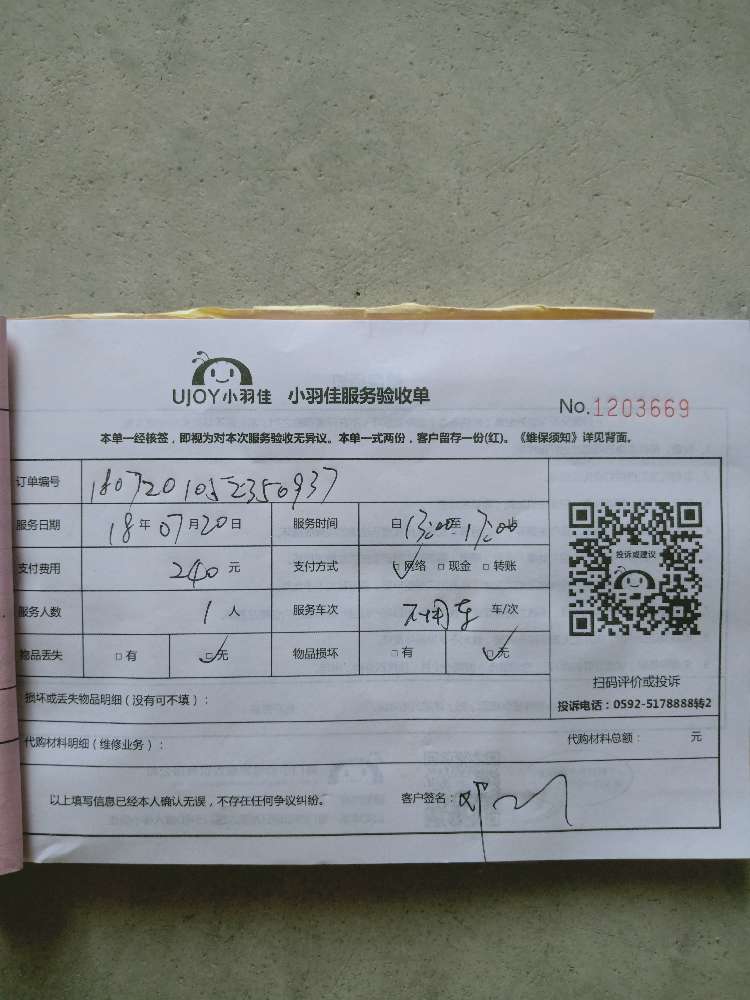 UJOY小羽佳 小羽佳服务验收单
No.1203669
本单一经核签，即视为对本次服务验收无异议。本单一式两份，客户留存一份(红)。《维保须知》详见背面。
订单编号 1807201052350937
服务日期 18年07月20日 服务时间 自13:00至17:00
支付费用 240元 支付方式 网络 现金 转账
投诉或建议
服务人数 1人 服务车次 不用车 车/次
物品丢失 有 无 物品损坏 有 无
扫码评价或投诉
损坏或丢失物品明细（没有可不填）：
投诉电话：0592-5178888转2
代购材料明细（维修业务）： 代购材料总额： 元
以上填写信息已经本人确认无误，不存在任何争议纠纷。 客户签名：